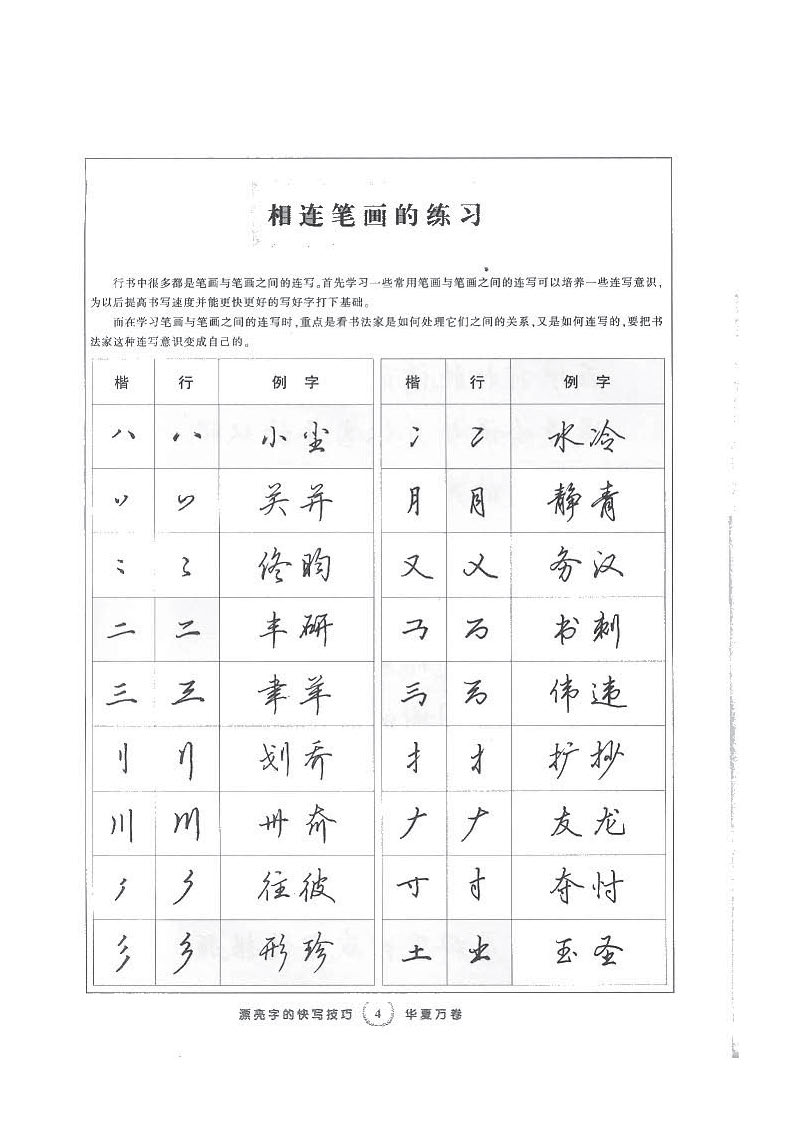 相连笔画的练习
行书中很多都是笔画与笔画之间的连写。首先学习一些常用笔画与笔画之间的连写可以培养一些连写意识，
为以后提高书写速度并能更快更好的写好字打下基础。
而在学习笔画与笔画之间的连写时，重点是看书法家是如何处理它们之间的关系，又是如何连写的，要把书
法家这种连写意识变成自己的。
楷 行 例字 楷 行 例字
八 八 小尘 冫 冫 水冷
丷 丷 关并 月 月 静青
佟昀 又 又 务汉
二 二 丰研 书刺
三 三 聿羊 伟违
刂 刂 划乔 扌 扌 扩抄
川 川 卅奋 𠂇 𠂇 友龙
往彼 寸 寸 夺忖
彡 彡 形珍 土 土 玉圣
漂亮字的快写技巧 4 华夏万卷